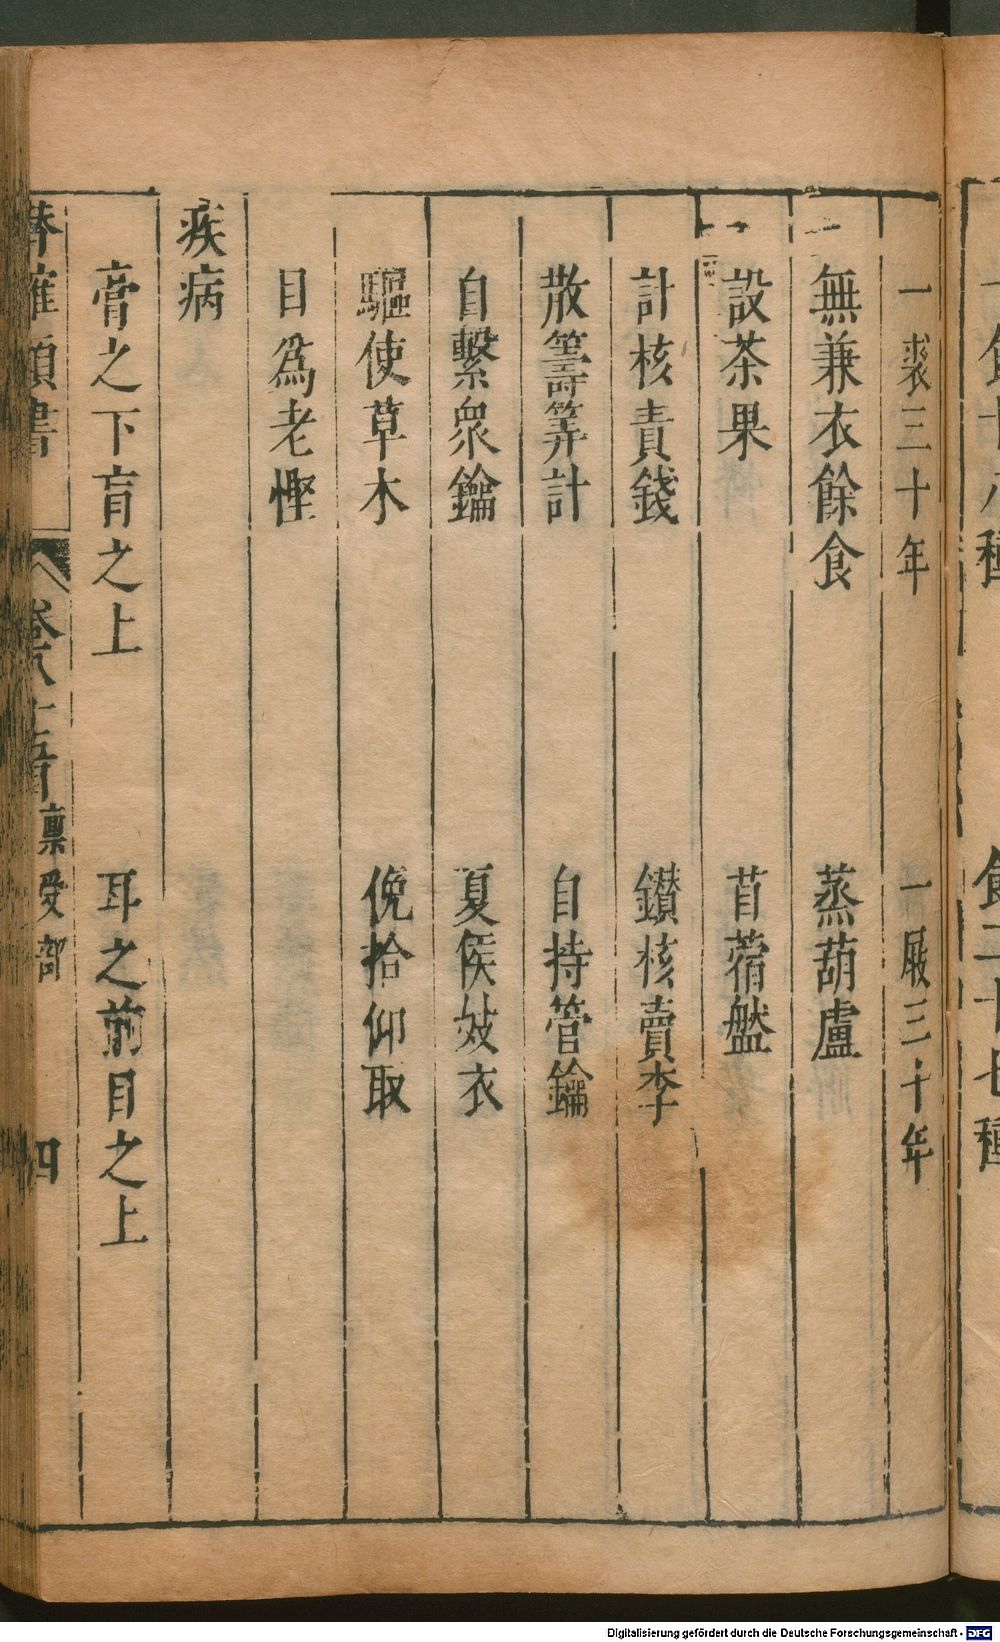 一裘三十年　一屐三十年
無兼衣餘食　蒸葫盧
設茶果　苜蓿盤
計核責錢　鑚核賣李
散籌筭計　自持管鑰
自繫衆鑰　夏侯妓衣
驅使草木　俛拾仰取
目爲老慳
疾病
膏之下肓之上　耳之前目之上
類書
稟受部
四
Digitalisierung gefördert durch die Deutsche Forschungsgemeinschaft - DFG